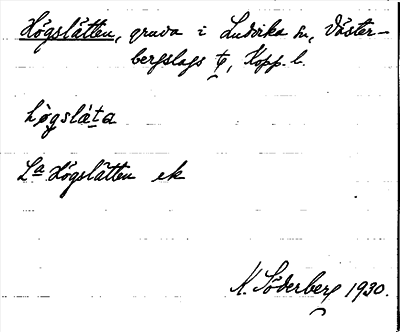 Högslätten, gruva i Ludvika sn, Väster-
bergslags tg, Kopp. l.
högslä̀ta
La Högslätten ek
N. Söderberg 1930.